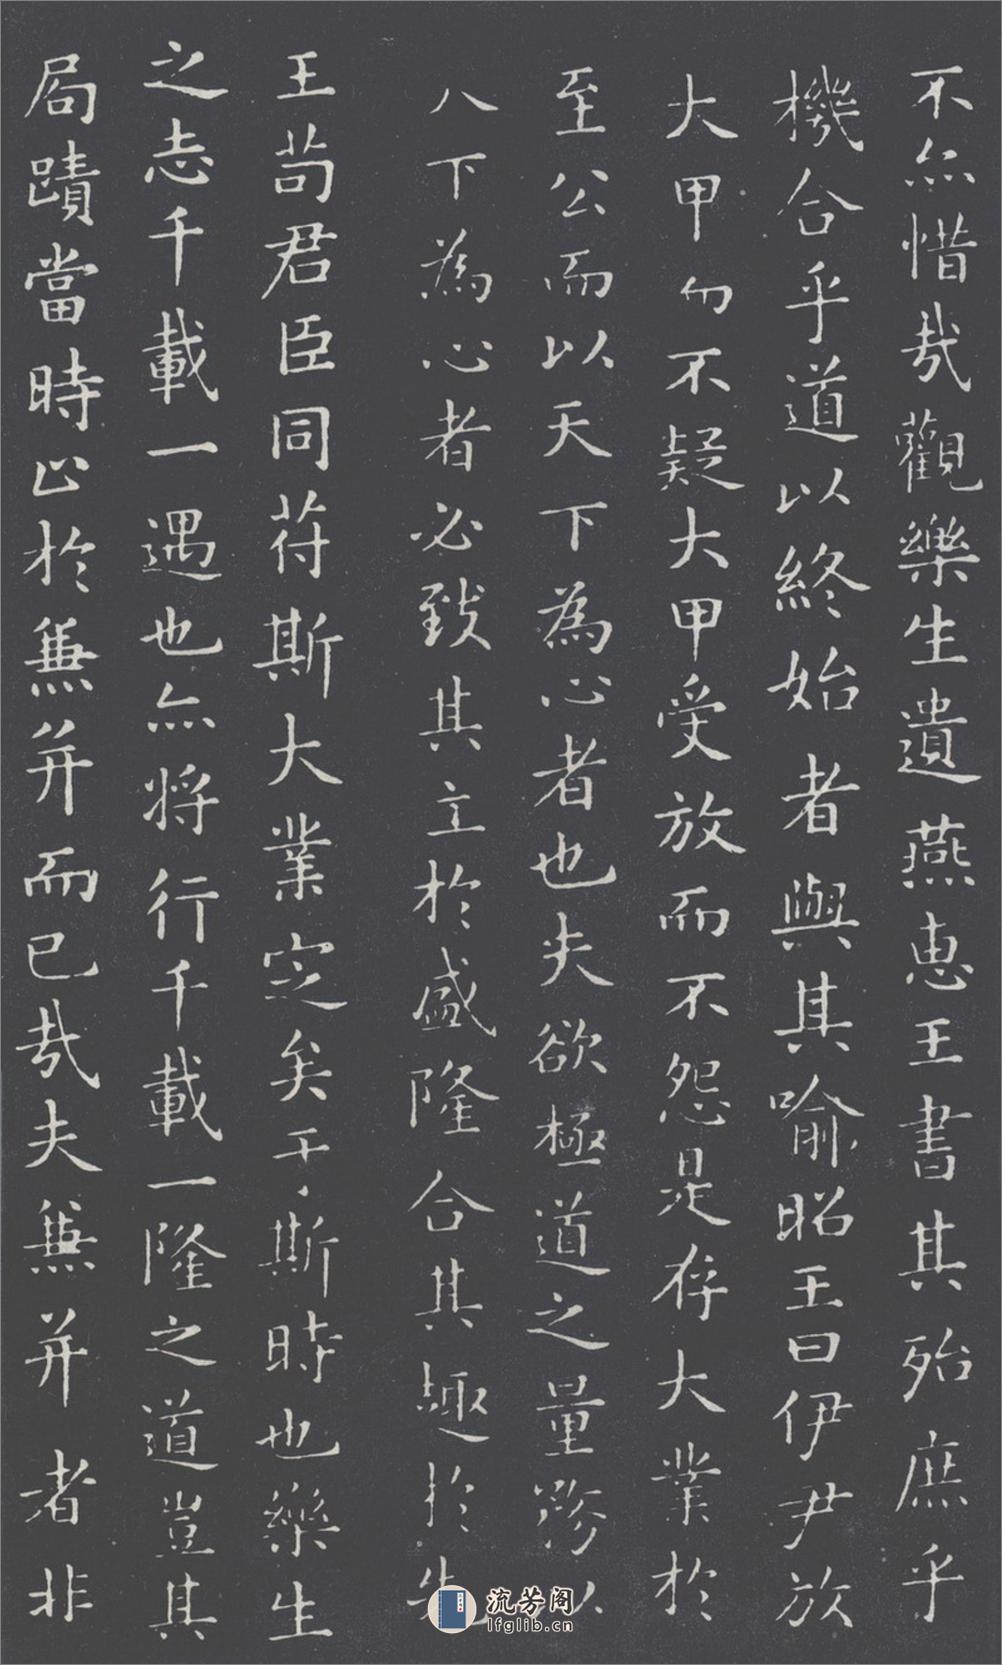 不亦惜哉觀樂生遺燕惠王書其殆庶乎
機合乎道以終始者與其喻昭王曰伊尹放
大甲而不疑大甲受放而不怨是存大業於
至公而以天下為心者也夫欲極道之量務以
天下為心者必致其主於盛隆合其趣於先
王苟君臣同符斯大業定矣于斯時也樂生
之志千載一遇也亦將行千載一隆之道豈其
局蹟當時止於兼并而已哉夫兼并者非
流芳阁
lfglib.cn